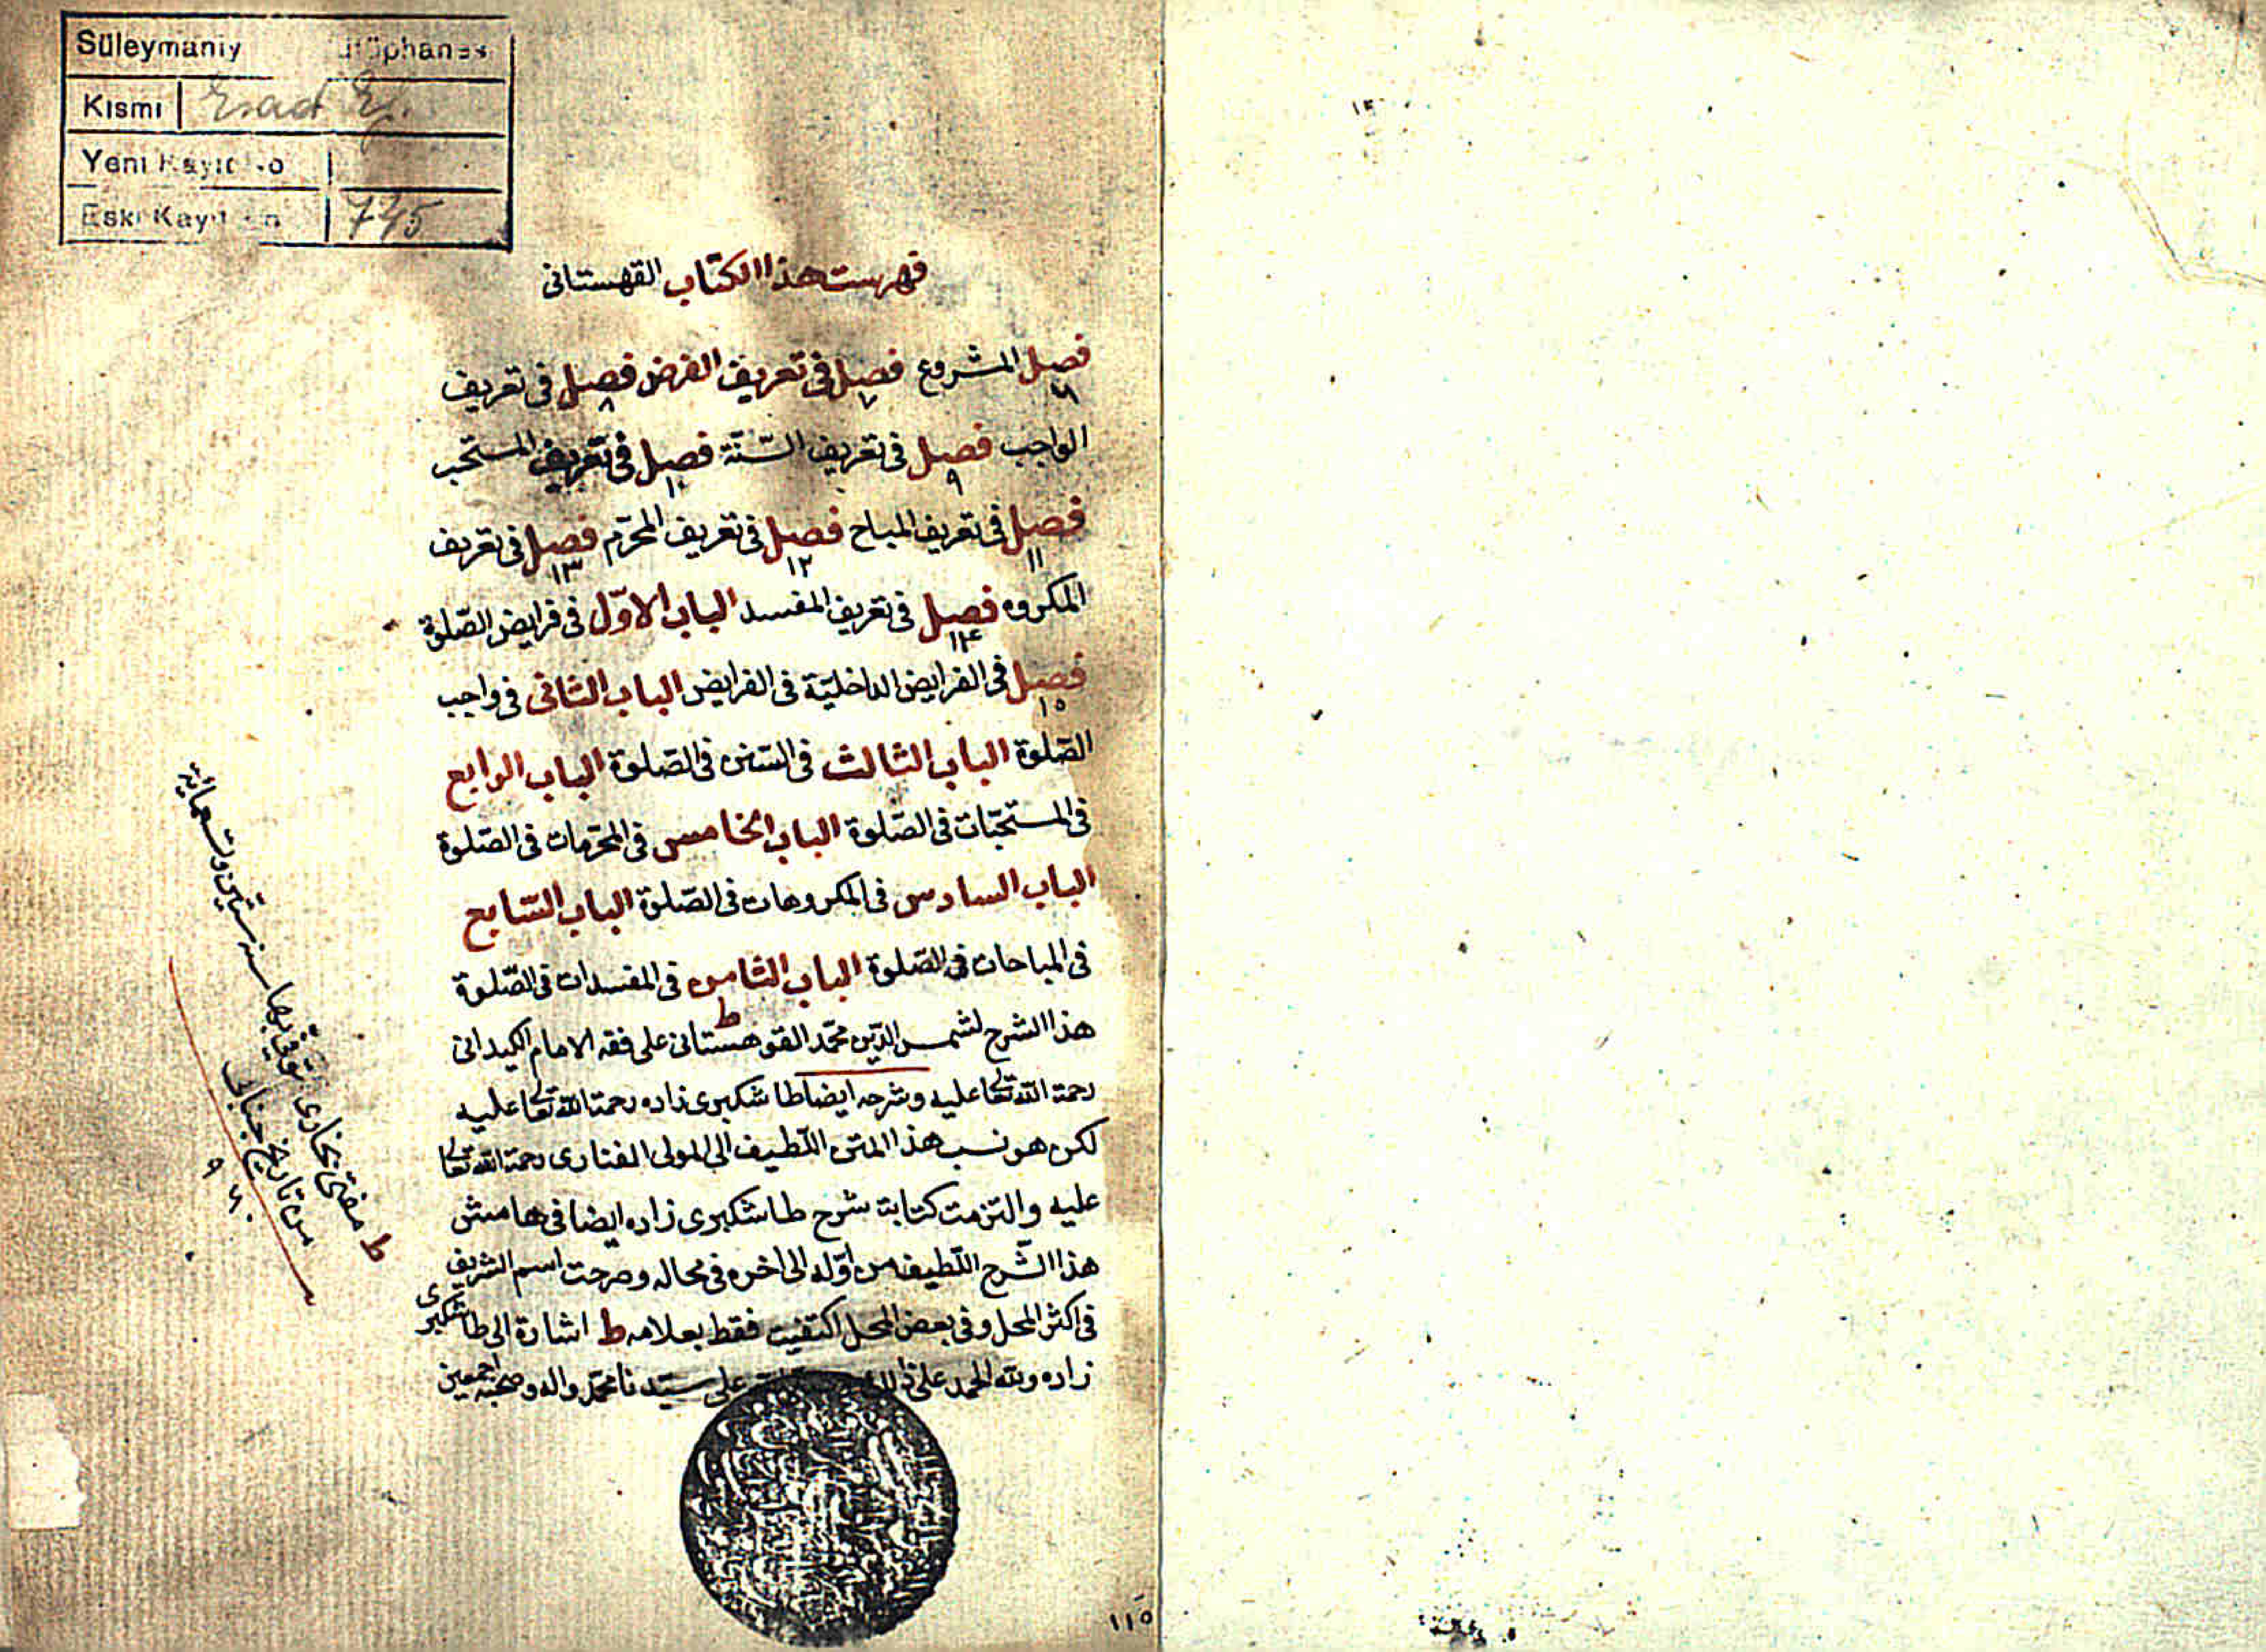 Süleymaniy
Kısmı Esad Ef.
Yeni Kayıt No
Eski Kayıt No 745
فهرست هذا الكتاب القهستانى
فصل المشروع فصل فى تعريف الفرض فصل فى تعريف
٦ ٧ ٨
الواجب فصل فى تعريف السّنّة فصل فى تعريف المستحب
٩ ١٠
فصل فى تعريف المباح فصل فى تعريف المحرّم فصل فى تعريف
١١ ١٢ ١٣
المكروه فصل فى تعريف المفسد الباب الاوّل فى فرايض الصّلوة
١٤
فصل فى الفرايض الداخليّة فى الفرايض الباب الثانى فى واجب
١٥
الصّلوة الباب الثالث فى السّنن فى الصّلوة الباب الرابع
فى المستحبّات فى الصّلوة الباب الخامس فى المحرّمات فى الصّلوة
الباب السادس فى المكروهات فى الصّلوة الباب السّابع
فى المباحات فى الصّلوة الباب الثامن فى المفسدات فى الصّلوة
هذا الشرح لشمس الدّين محمّد القوهستانى ط على فقه الامام الكيدانى
رحمة اللّه تعا عليه وشرحه ايضا طاشكبرى زاده رحمة اللّه تعا عليه
لكن هو نسب هذا المتن اللّطيف الى المولى الفنارى رحمة اللّه تعا
عليه والتزمت كتابة شرح طاشكبرى زاده ايضا فى هامش
هذا الشّرح اللّطيف من اوّله الى اخره فى محاله وصرحت اسم الشريف
فى اكثر المحل وفى بعض المحل اكتفيت فقط بعلامه ط اشارة الى طاشكبرى
زاده وللّه الحمد على ذلك على سيّدنا محمّد واله وصحبه اجمعين
ط مفتى بخارى توفى بها سنه ستين وتسعمائة
من تاريخ جنابى
٩٦٠
١١٥